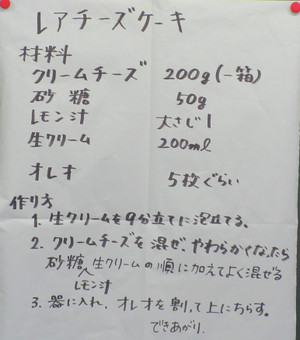 レアチーズケーキ
材料
クリームチーズ 200g(一箱)
砂糖 50g
レモン汁 大さじ1
生クリーム 200ml
オレオ 5枚ぐらい
作り方
1. 生クリームを9分立てに泡立てる。
2. クリームチーズを混ぜ、やわらかくなったら
砂糖、レモン汁、生クリームの順に加えてよく混ぜる
3. 器に入れ、オレオを割って上にちらす。
できあがり。